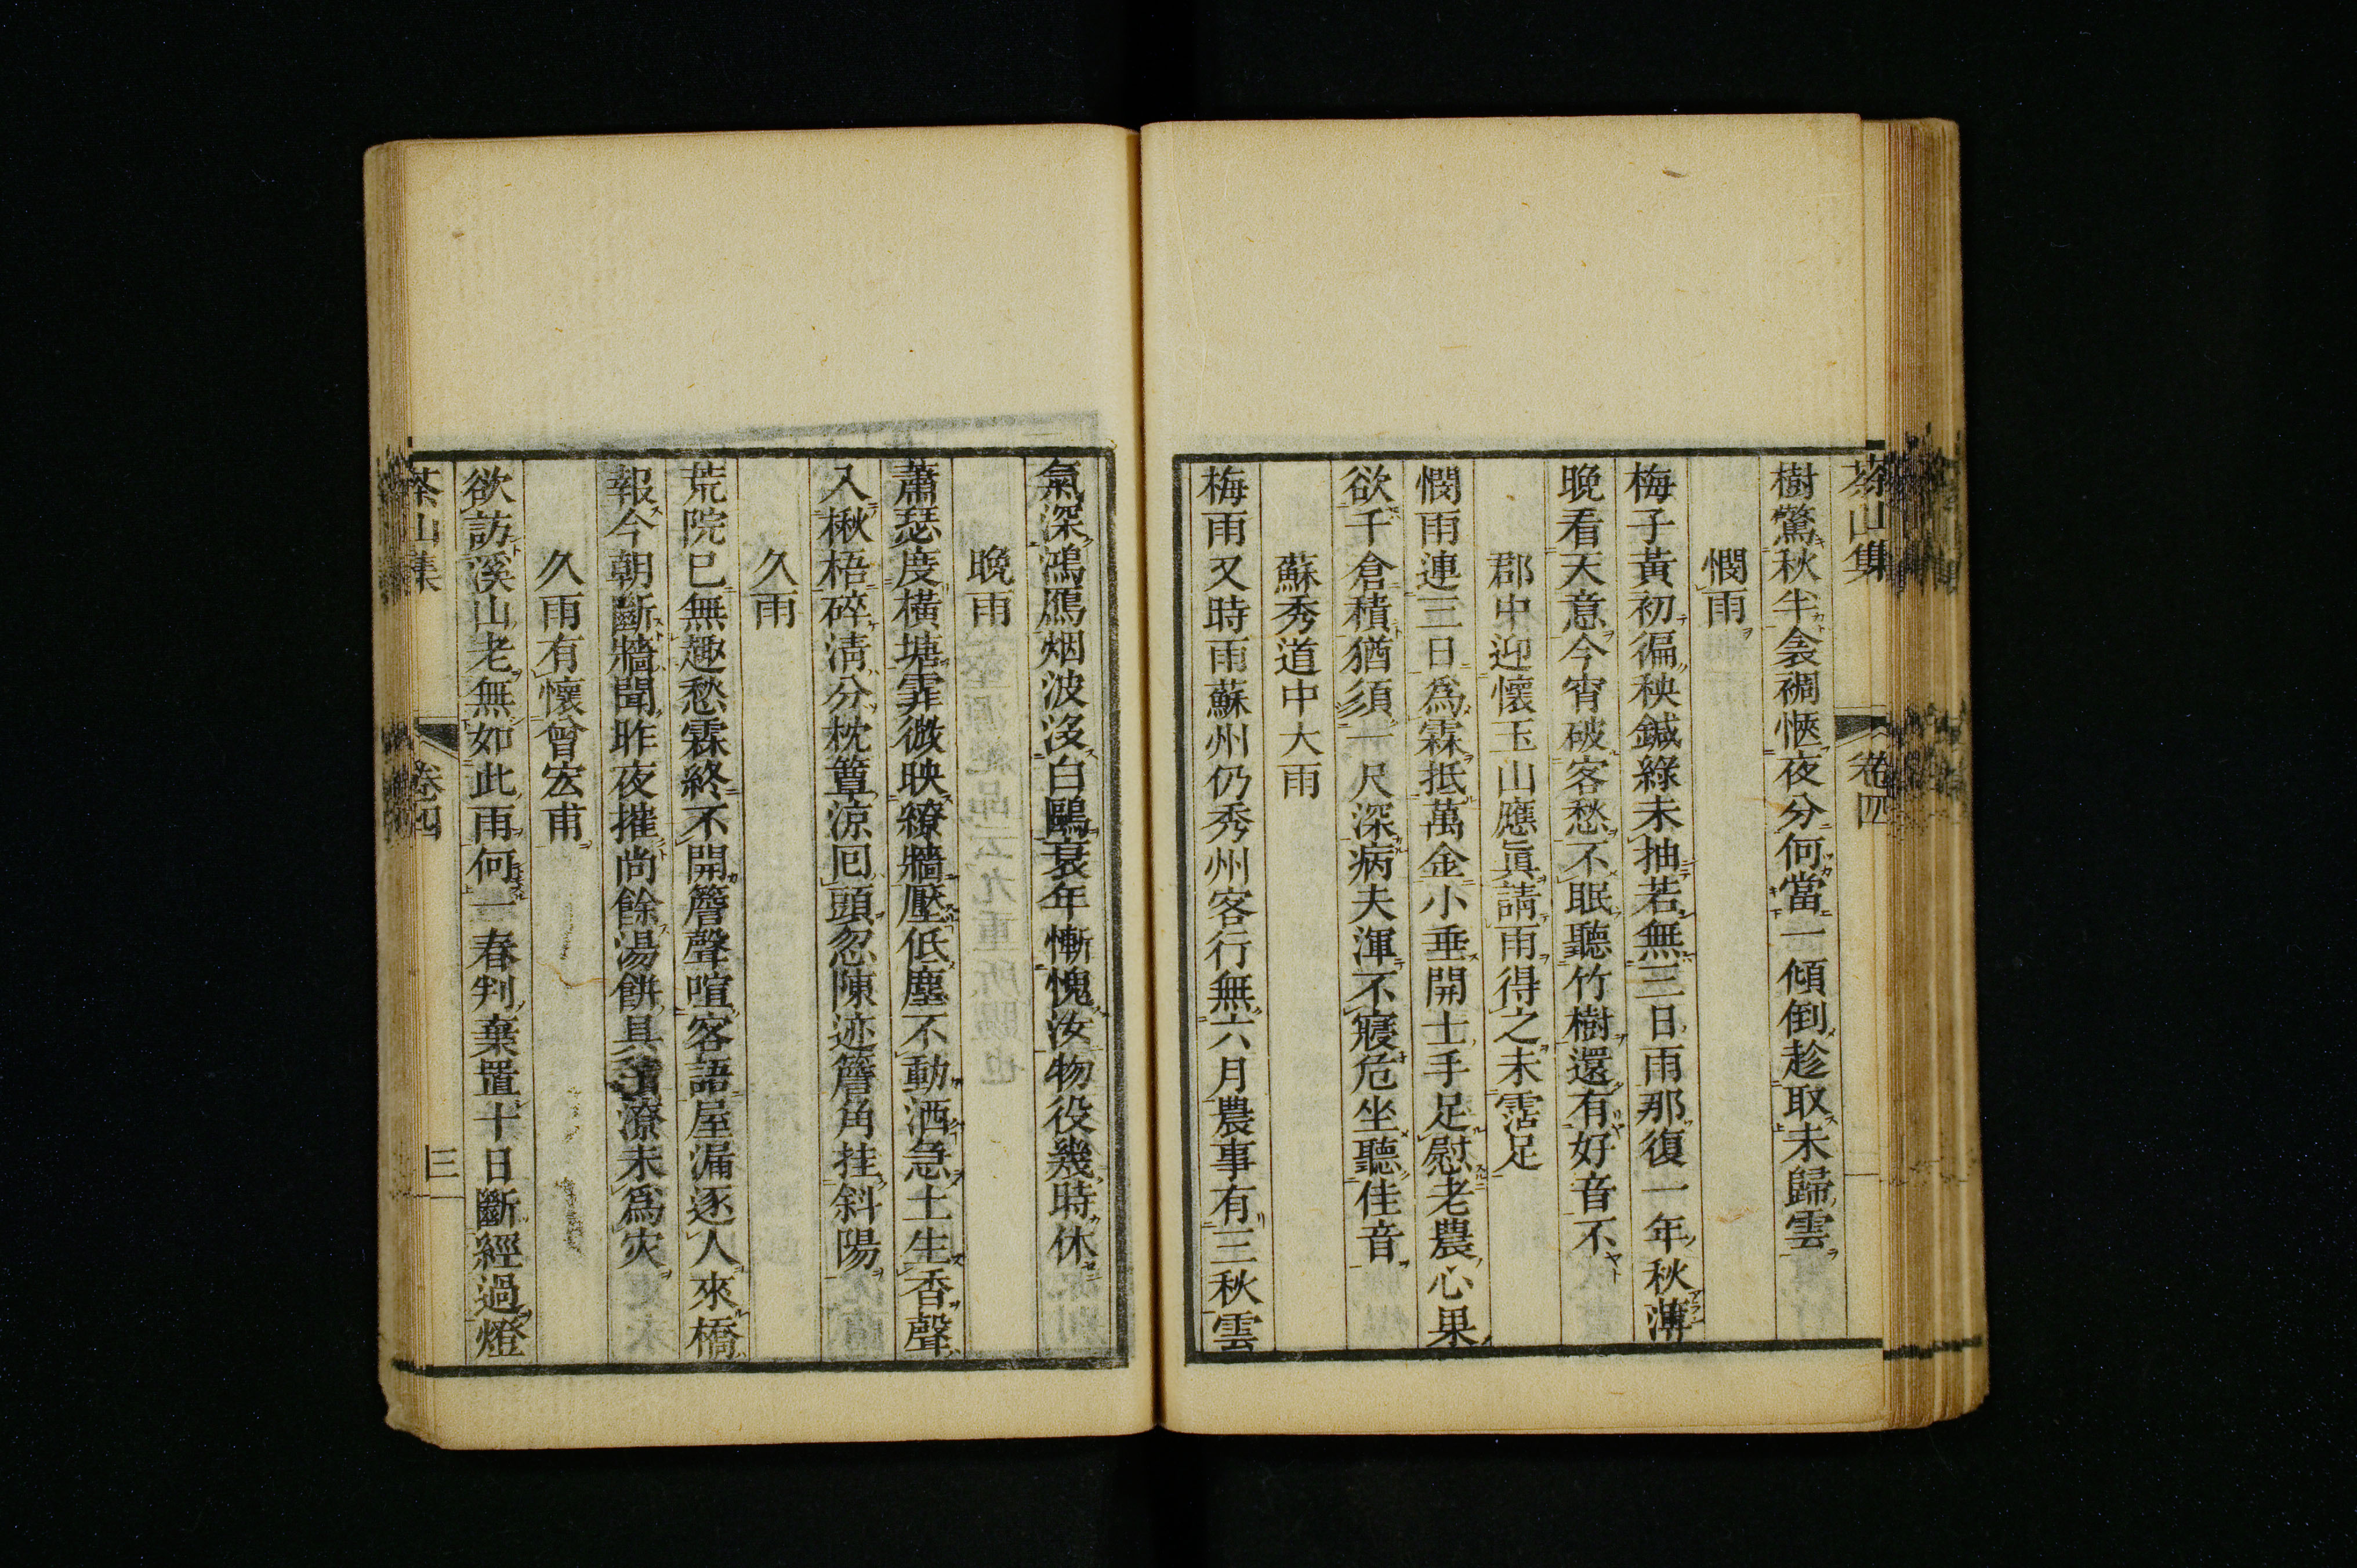 茶山集 卷四
樹驚秋半衾裯愜夜分何當一傾倒趁取未歸雲
憫雨
梅子黃初徧秧鍼綠未抽若無三日雨那復一年秋薄
晚看天意今宵破客愁不眠聽竹樹還有好音不
郡中迎懷玉山應眞請雨得之未霑足
憫雨連三日爲霖抵萬金小垂開士手足慰老農心果
欲千倉積猶須一尺深病夫渾不寢危坐聽佳音
蘇秀道中大雨
梅雨又時雨蘇州仍秀州客行無六月農事有三秋雲
氣深鴻鴈烟波沒白鷗衰年慚愧汝物役幾時休
晚雨
蕭瑟度橫塘霏微映繚牆壓低塵不動洒急土生香聲
入楸梧碎淸分枕簟涼回頭忽陳迹簷角挂斜陽
久雨
荒院已無趣愁霖終不開簷聲喧客語屋漏逐人來橋
報今朝斷牆聞昨夜摧尚餘湯餠具潦未爲灾
久雨有懷曾宏甫
欲訪溪山老無如此雨何一春判棄置十日斷經過燈
茶山集 卷四 三